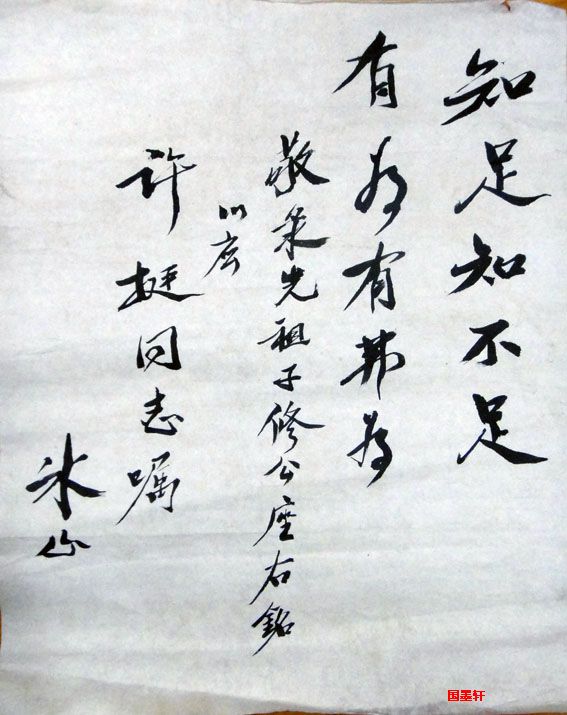 知足知不足
有为有弗为
敬录先祖子修公座右铭
以应
许挺同志嘱
冰心
国墨轩